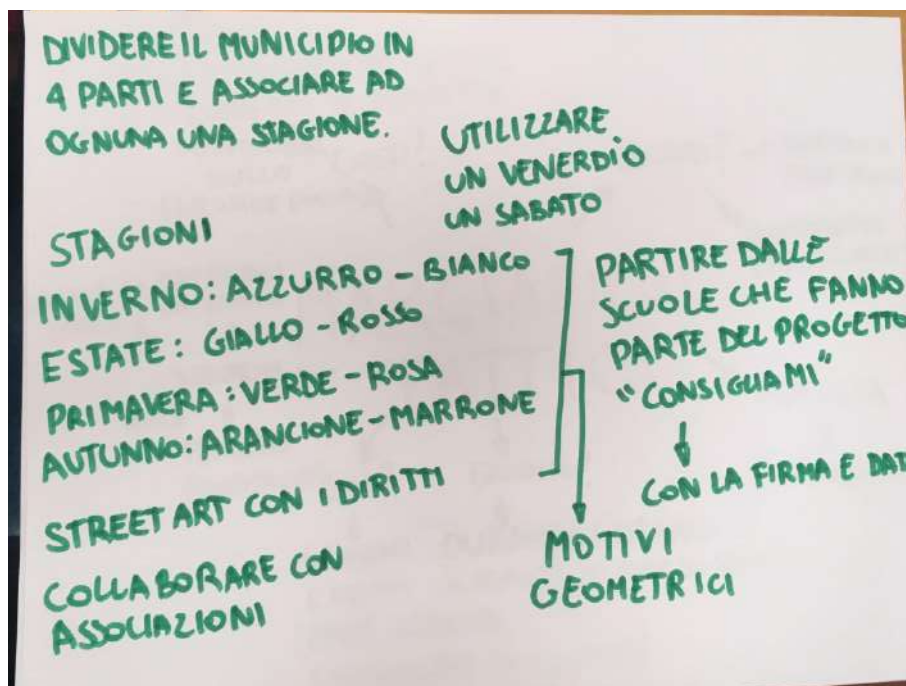 DIVIDERE IL MUNICIPIO IN
4 PARTI E ASSOCIARE AD
OGNUNA UNA STAGIONE.
UTILIZZARE
UN VENERDÌ O
UN SABATO
STAGIONI
INVERNO: AZZURRO - BIANCO
ESTATE: GIALLO - ROSSO
PRIMAVERA: VERDE - ROSA
AUTUNNO: ARANCIONE - MARRONE
STREET ART CON I DIRITTI
COLLABORARE CON
ASSOCIAZIONI
MOTIVI
GEOMETRICI
PARTIRE DALLE
SCUOLE CHE FANNO
PARTE DEL PROGETTO
"CONSIGLIAMI"
CON LA FIRMA E